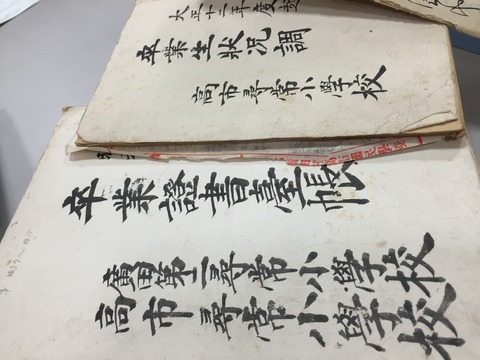 大正十二年度
卒業生狀況調
高市尋常小學校
卒業證書臺帳
廣田第二尋常小學校
高市尋常小學校